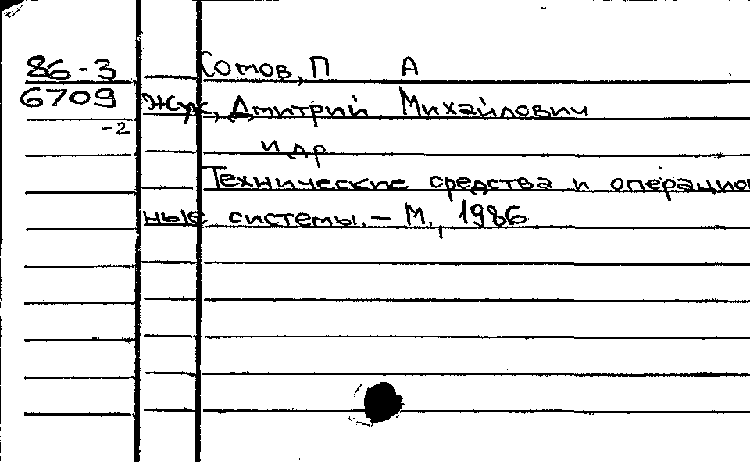 86-3 Сомов, П А
6709 Жук, Дмитрий Михайлович
-2
и др
Технические средства и операцион
ные системы. - М., 1986